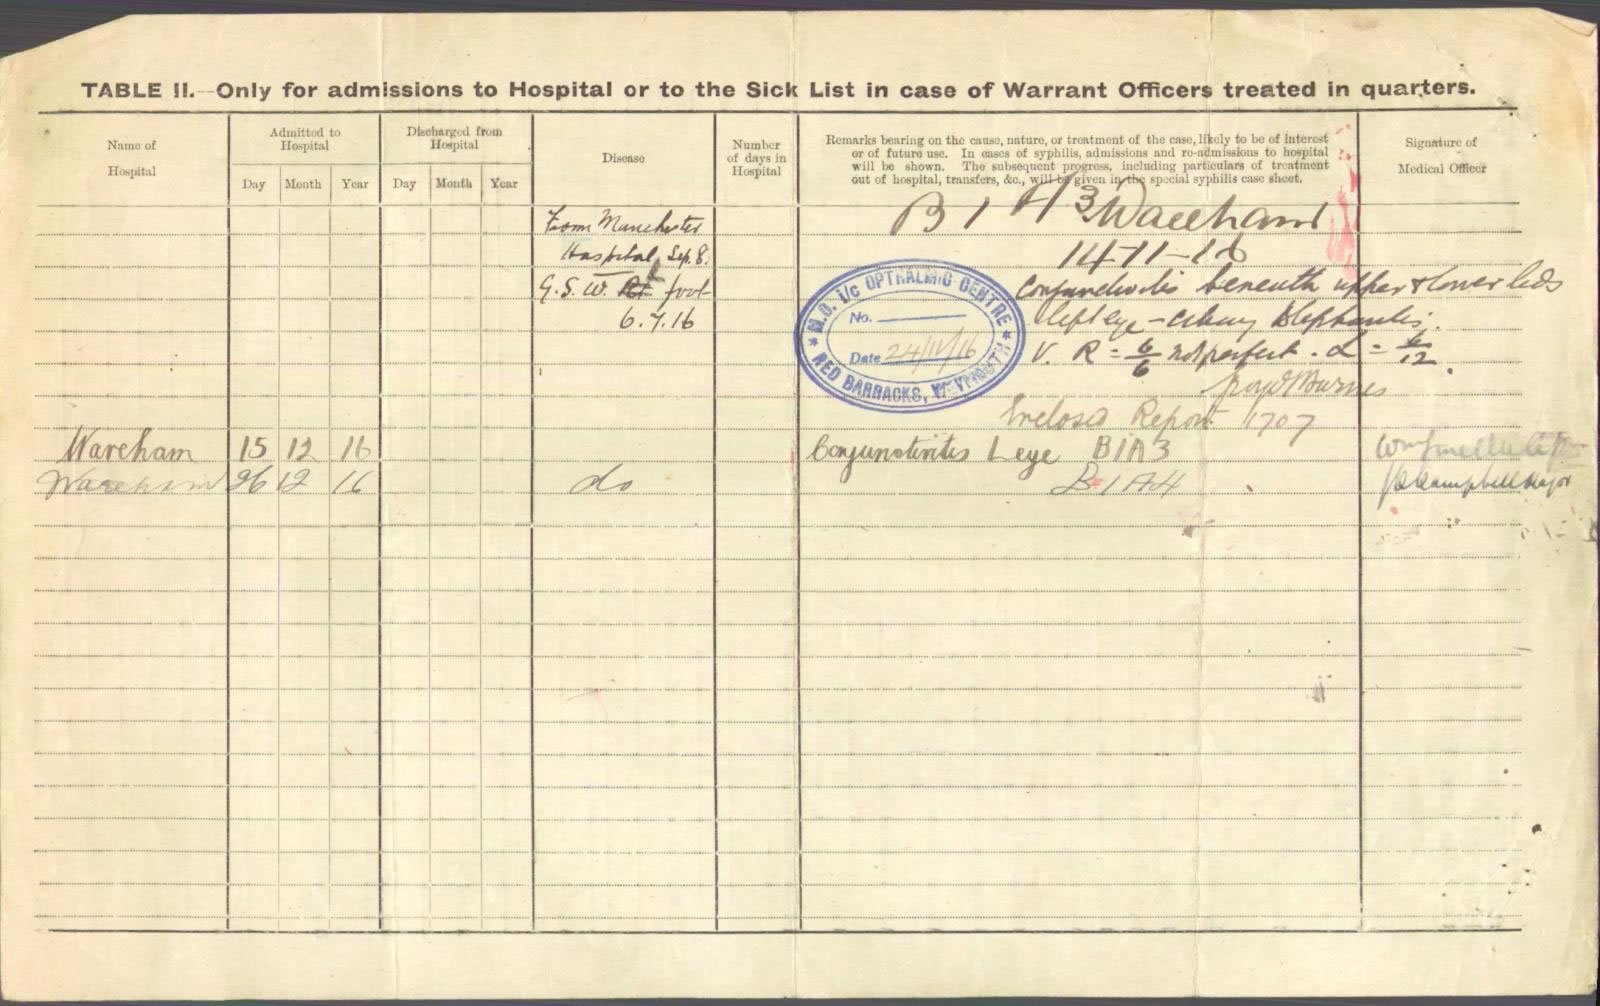 TABLE II.—Only for admissions to Hospital or to the Sick List in case of Warrant Officers treated in quarters.
Name of
Hospital
Admitted to
Hospital
Day Month Year
Discharged from
Hospital
Day Month Year
Disease
Number
of days in
Hospital
Remarks bearing on the cause, nature, or treatment of the case, likely to be of interest
or of future use. In cases of syphilis, admissions and re-admissions to hospital
will be shown. The subsequent progress, including particulars of treatment
out of hospital, transfers, &c., will be given in the special syphilis case sheet.
Signature of
Medical Officer
From Manchester
Hospital Sep. 8.
G. S. W. foot
6.7.16
B 1 A 3 Wareham
14-11-16
M.O. i/c OPTHALMIC CENTRE
No.
Date 24/11/16
RED BARRACKS, WEYMOUTH
Conjunctivitis beneath upper & lower lids
left eye - Blepharitis.
V. R = 6/6 not perfect. L = 6/12.
Enclosed Report 1707
Wareham 15 12 16 Conjunctivites L eye B1A3
Wareham 26 12 16 do B1A4 Campbell Major